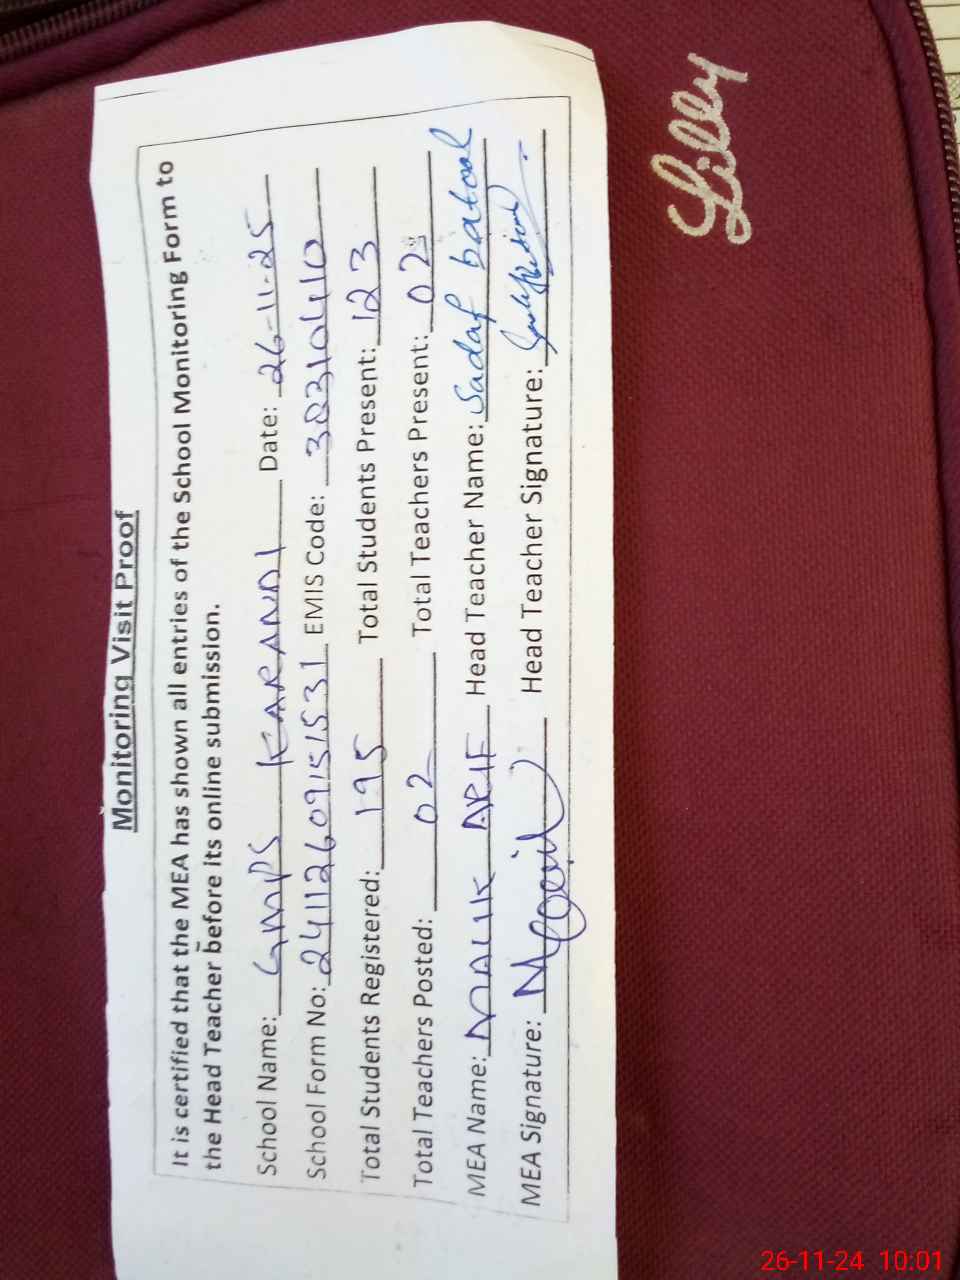 Monitoring Visit Proof
It is certified that the MEA has shown all entries of the School Monitoring Form to
the Head Teacher before its online submission.
School Name: GMPS KARANDI Date: 26-11-25
School Form No: 24112609151531 EMIS Code: 38310410
Total Students Registered: 195 Total Students Present: 123
Total Teachers Posted: 02 Total Teachers Present: 02
MEA Name: MALIK ARIF Head Teacher Name: Sadaf batool
MEA Signature: Head Teacher Signature:
Lilly
26-11-24 10:01